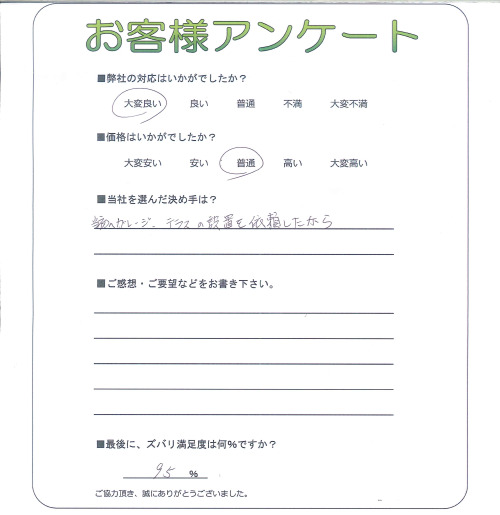 お客様アンケート
■弊社の対応はいかがでしたか？
大変良い 良い 普通 不満 大変不満
■価格はいかがでしたか？
大変安い 安い 普通 高い 大変高い
■当社を選んだ決め手は？
カーレージ、テラスの設置を依頼したから
■ご感想・ご要望などをお書き下さい。
■最後に、ズバリ満足度は何％ですか？
95 %
ご協力頂き、誠にありがとうございました。